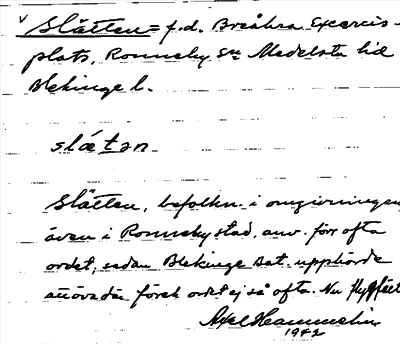 v Slätten = f.d. Bredåkra Excercis-
plats, Ronneby Sn Medelsta hd
Blekinge l.
slǽtən
Slätten, befolkn. i omgivningen,
även i Ronneby stad, anv. förr ofta
ordet, sedan Blekinge Bat. upphörde
att öva där förek ordet ej så ofta. Nu Flygfält
Axel
1942